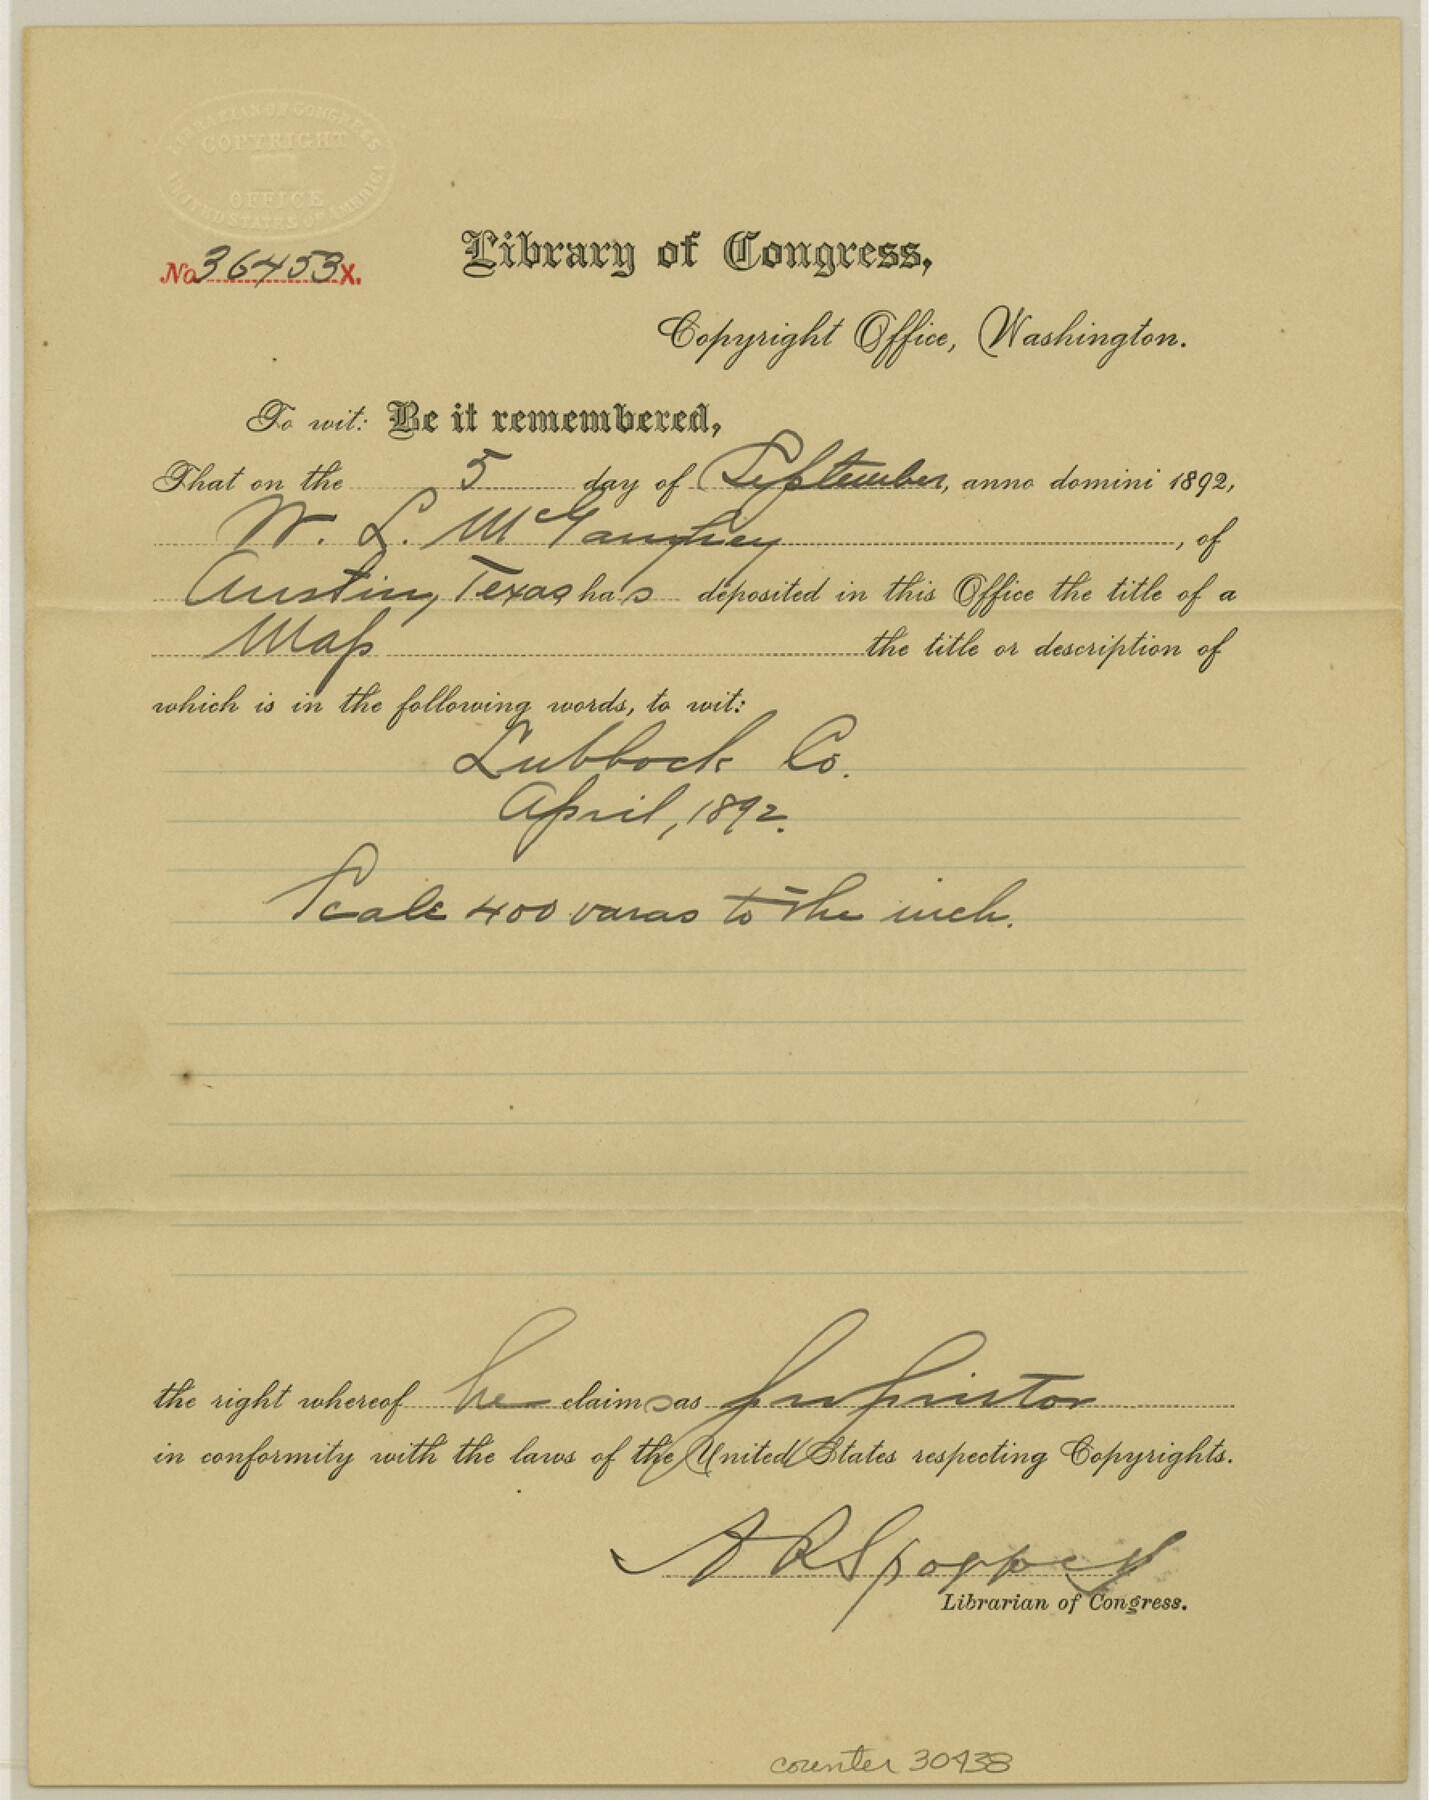 LIBRARIAN OF CONGRESS
COPYRIGHT
OFFICE
UNITED STATES OF AMERICA
No 36453X.
Library of Congress,
Copyright Office, Washington.
To wit: Be it remembered,
That on the 5 day of September, anno domini 1892,
W. L. McGaughey, of
Austin, Texas has deposited in this Office the title of a
Map the title or description of
which is in the following words, to wit:
Lubbock Co.
April, 1892.
Scale 400 varas to the inch.
the right whereof he claims as proprietor
in conformity with the laws of the United States respecting Copyrights.
A R Spofford
Librarian of Congress.
counter 30438